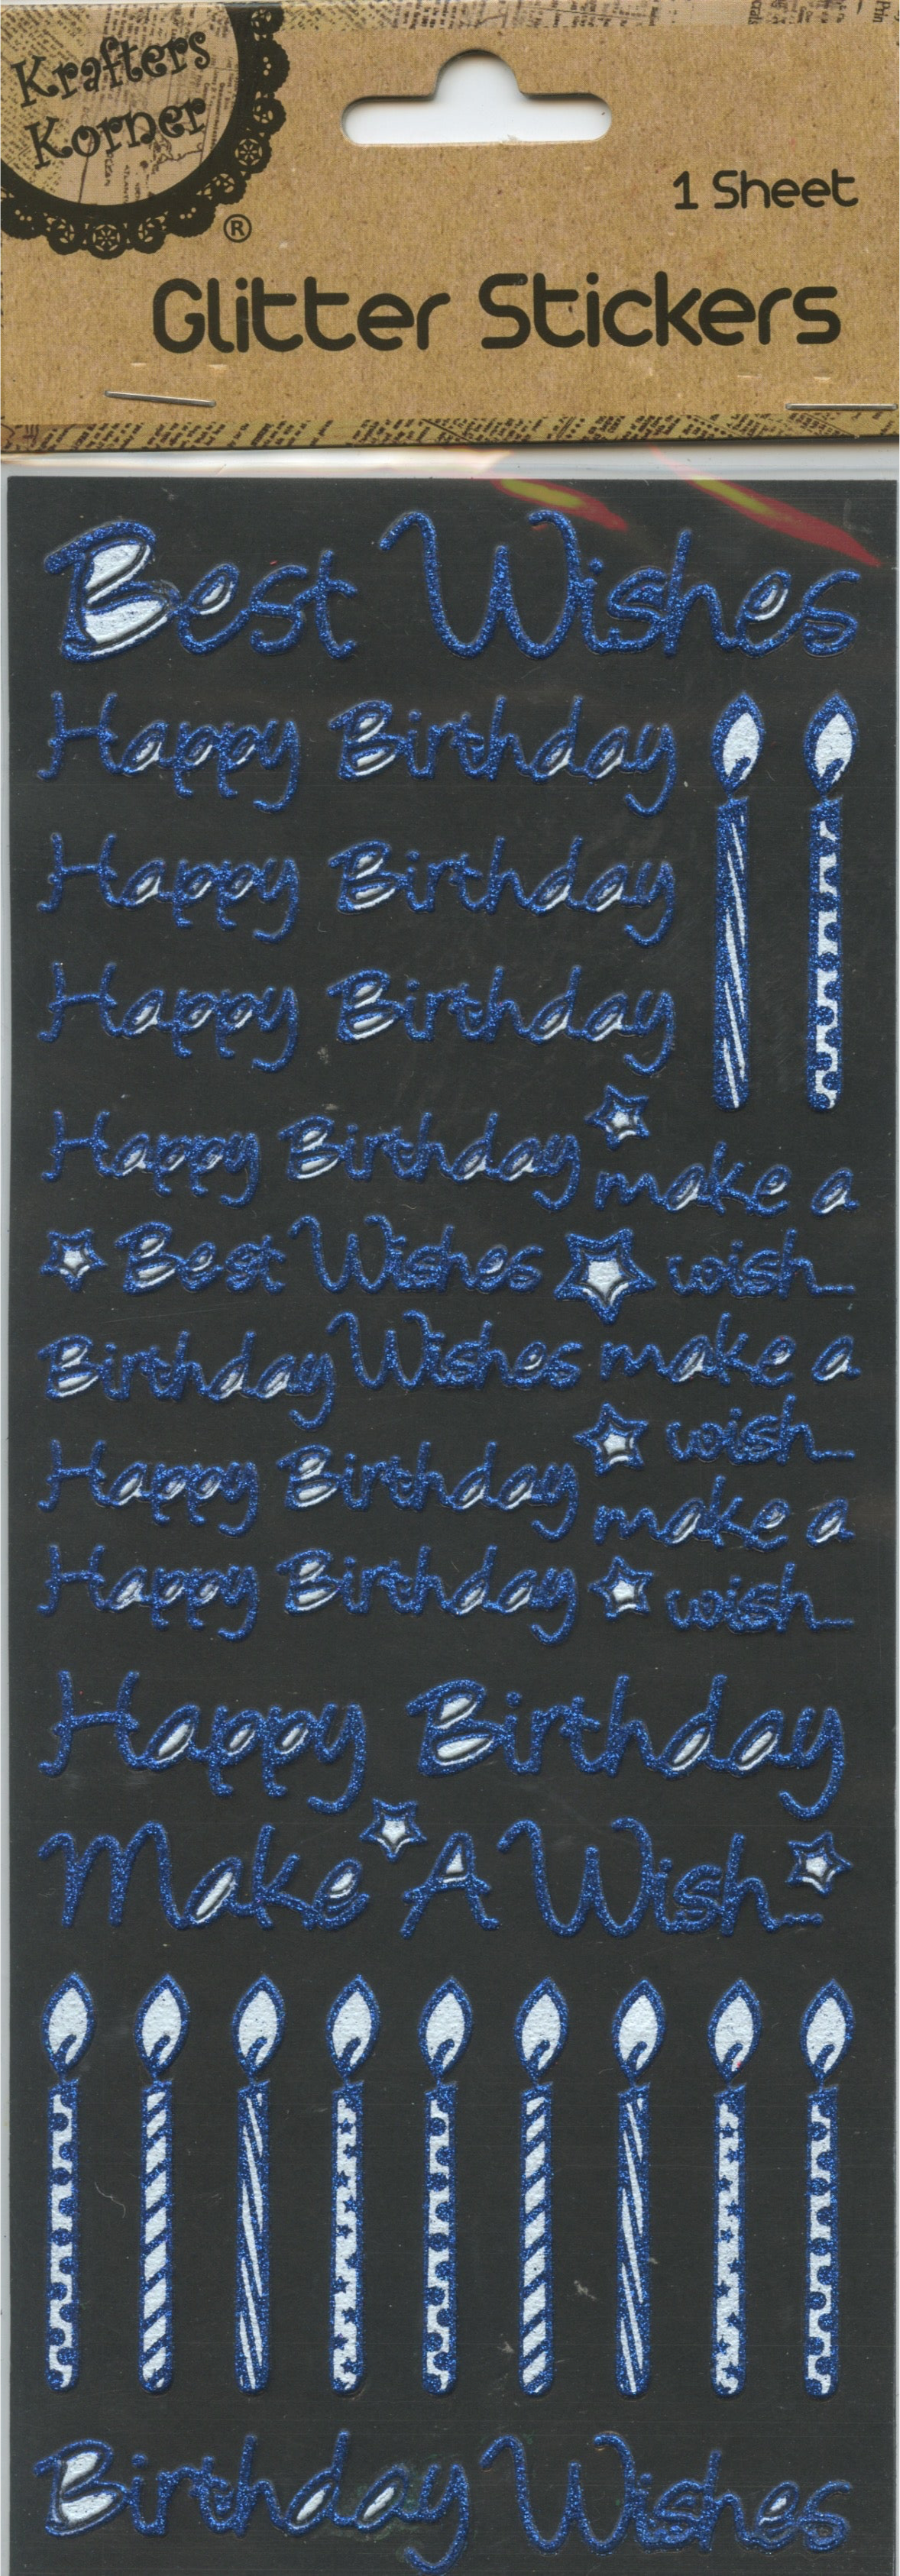 Krafters
Korner
®
1 Sheet
Glitter Stickers
Best Wishes
Happy Birthday
Happy Birthday
Happy Birthday
Happy Birthday make a
Best Wishes wish...
Birthday Wishes make a
wish...
Happy Birthday
make a
Happy Birthday wish...
Happy Birthday
Make A Wish...
Birthday Wishes